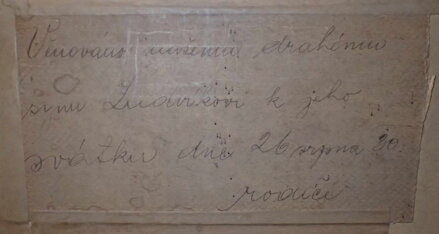 Věnováno našemu drahému
synu Ludvíkovi k jeho
svátku dne 26 srpna 30
rodiče